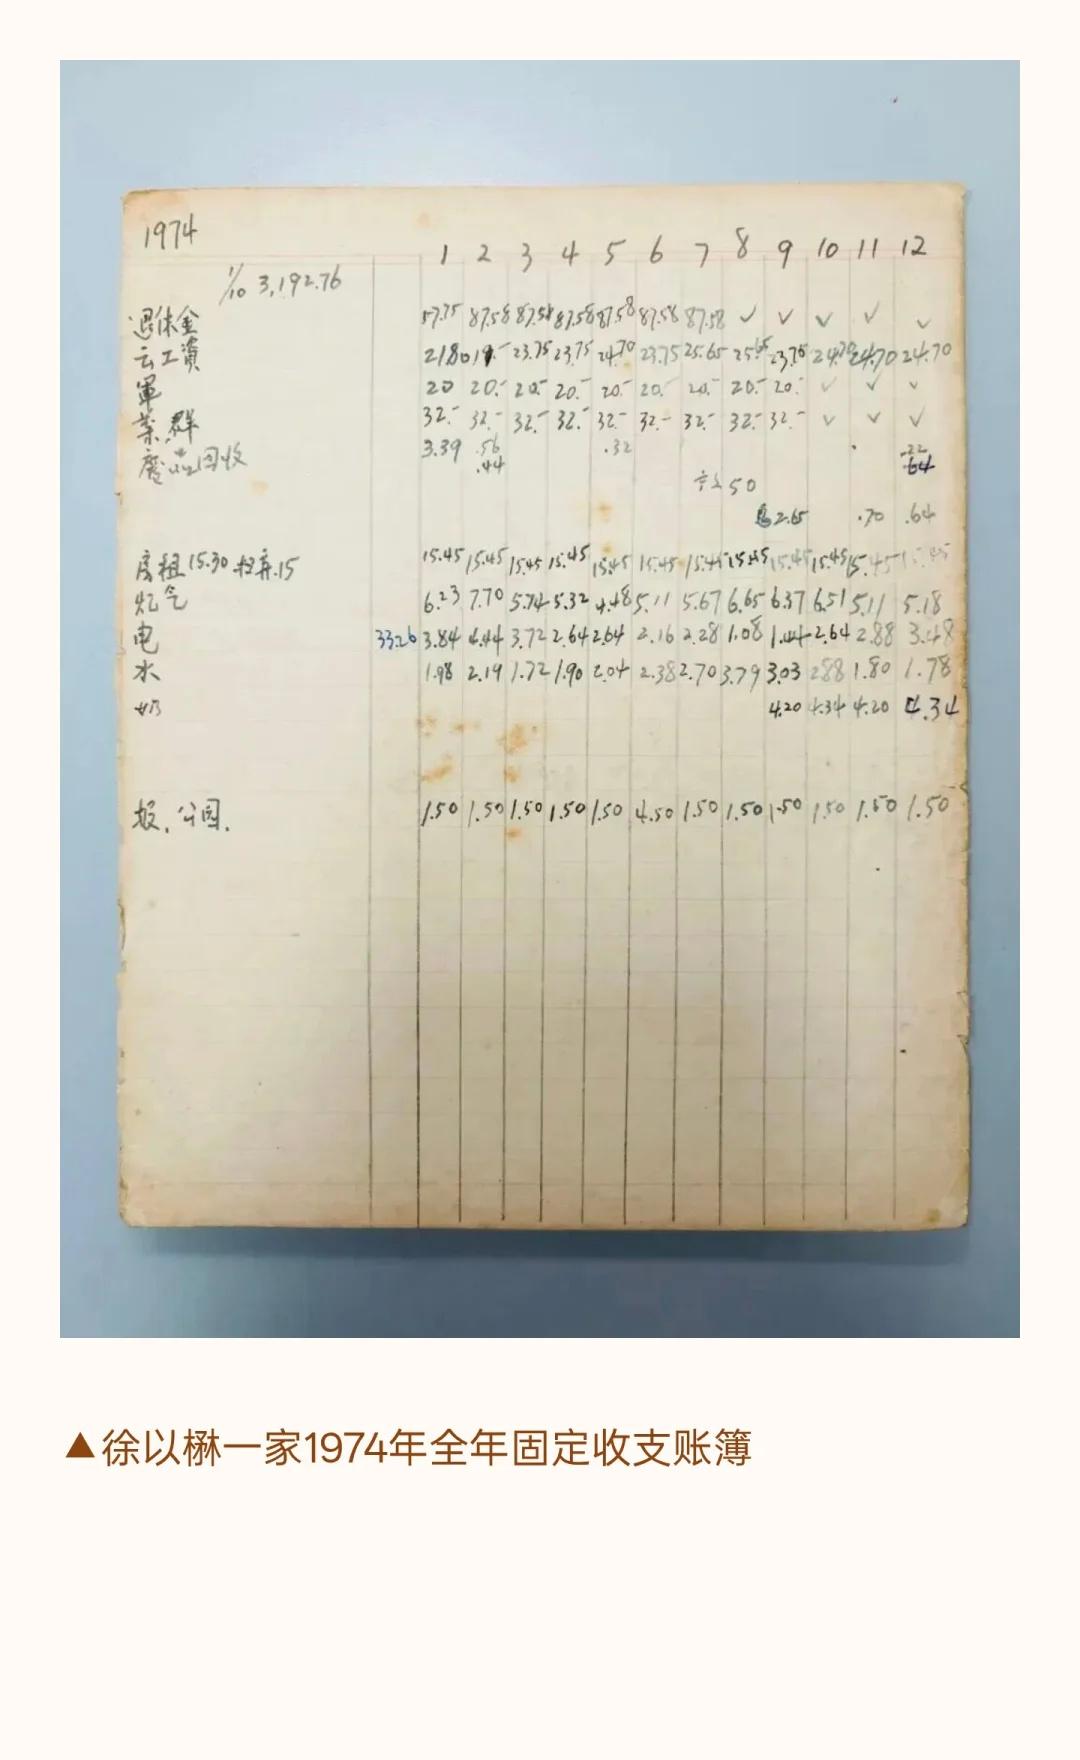 1974
1 2 3 4 5 6 7 8 9 10 11 12
1/10 3,192.76
退休金 87.58 87.58 87.58 87.58 87.58 87.58 ✓ ✓ ✓ ✓ ✓
云工資 2180 19.- 23.75 23.75 24.70 23.75 25.65 25.65 23.75 24.70 24.70 24.70
軍 20 20.- 20.- 20.- 20.- 20.- 20.- 20.- 20.- ✓ ✓ ✓
業.群 32.- 32.- 32.- 32.- 32.- 32.- 32.- 32.- 32.- ✓ ✓ ✓
廢品回收 3.39 .56 .32 .22
.44 .64
50
2.65 .70 .64
房租15.30 .15 15.45 15.45 15.45 15.45 15.45 15.45 15.45 15.45 15.45 15.45 15.45 15.45
气 6.23 7.70 5.74 5.32 4.48 5.11 5.67 6.65 6.37 6.51 5.11 5.18
电 3326 3.84 4.44 3.72 2.64 2.64 2.16 2.28 1.08 1.44 2.64 2.88 3.48
水 1.98 2.19 1.72 1.90 2.04 2.38 2.70 3.79 3.03 2.88 1.80 1.78
奶 4.20 4.34 4.20 4.34
报.公园. 1.50 1.50 1.50 1.50 1.50 4.50 1.50 1.50 1.50 1.50 1.50 1.50
▲徐以楙一家1974年全年固定收支账簿